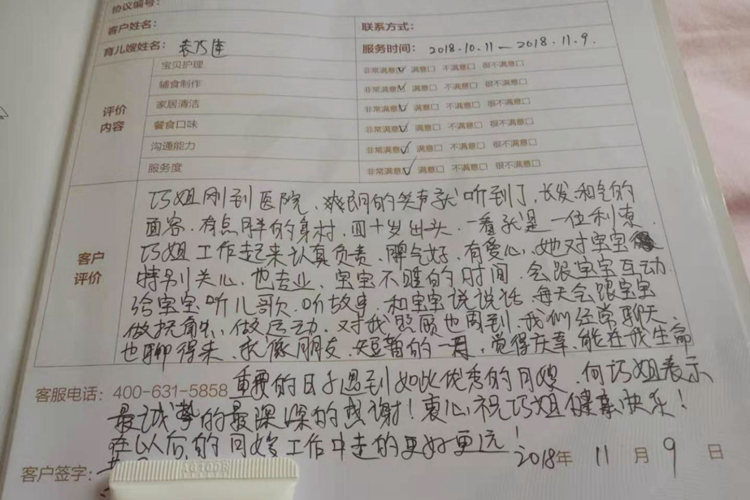 协议编号：
客户姓名： 联系方式：
育儿嫂姓名： 袁巧连 服务时间： 2018.10.11—2018.11.9.
宝贝护理 非常满意☑ 满意□ 不满意□ 很不满意□
辅食制作 非常满意☑ 满意□ 不满意□ 很不满意□
家居清洁 非常满意☑ 满意□ 不满意□ 很不满意□
评价内容
餐食口味 非常满意☑ 满意□ 不满意□ 很不满意□
沟通能力 非常满意☑ 满意□ 不满意□ 很不满意□
服务度 非常满意☑ 满意□ 不满意□ 很不满意□
巧姐刚到医院，爽朗的笑声就听到了，长发和气的
面容，有点胖的身材，四十岁出头，一看就是一位利索，
巧姐工作起来认真负责，脾气好，有爱心，她对宝宝很
客户评价
特别关心，也专业，宝宝不睡的时间，会跟宝宝互动，
给宝宝听儿歌，听故事，和宝宝说说话，每天会跟宝宝
做抚触，做运动，对我照顾也周到，我们经常聊天，
也聊得来，就像朋友，短暂的一月，觉得庆幸，能在我生命
客服电话：400-631-5858 重要的日子遇到如此优秀的月嫂，向巧姐表示
最诚挚的最深深的感谢！衷心祝巧姐健康快乐！
在以后的月嫂工作中走的更好更远！
客户签字： 2018年 11 月 9 日